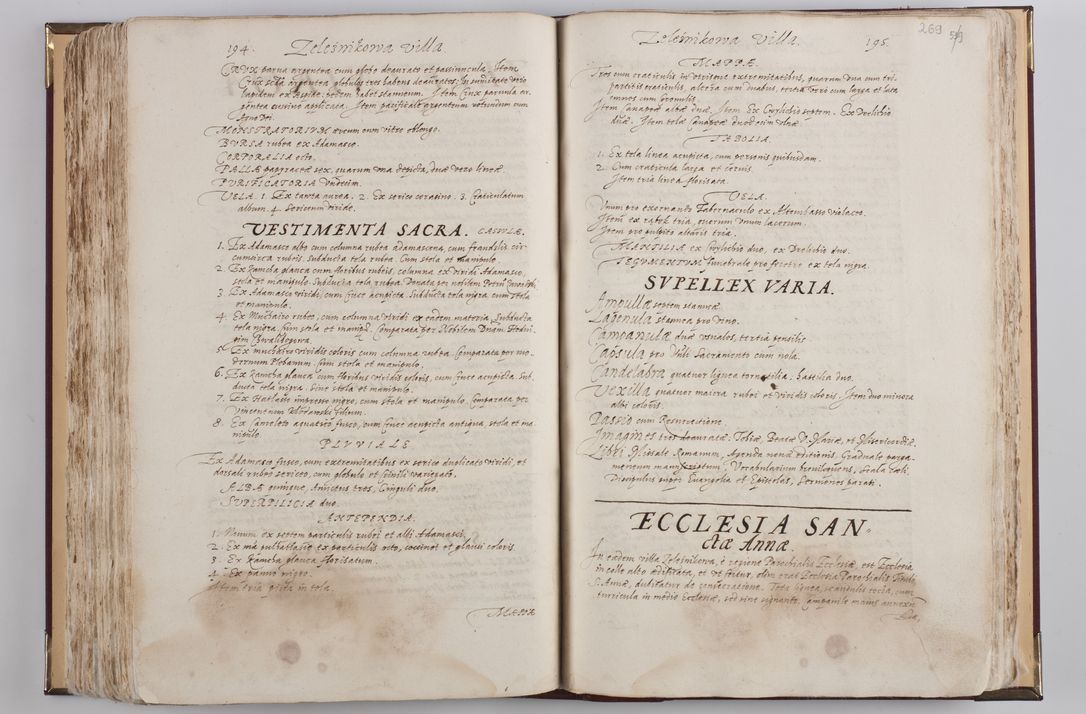 194.
Zeleśnikowa Villa.
CRUX parua argentea cum globo deaurato et passiuncula. Item
Crux 2da argentea globulos tres habens deauratos: In summitate vero
lapidem ex Aspide, pedem habet stanneum. Item Crux paruula ar-
gentea cussino applicata. Item pacificale argenteum rotundum cum
Agno Dei.
MONSTRATORIUM areum cum vitro oblongo.
BURSA rubea ex Adamasco.
CORPORALIA octo.
PALLÆ papyraceæ sex, quarum una depicta, duæ vero lineæ.
PURIFICATORIA Undecim.
VELA. 1. Ex tawta aurea. 2. Ex serico ceratino. 3. Craticulatum
album. 4. Sericeum viride.
VESTIMENTA SACRA. CASULÆ.
1. Ex Adamasco albo cum columna rubea adamascena, cum frandzlis cir-
cumcirca rubeis. Subducta tela rubea. Cum stola et manipulo.
2. Ex kamcha glauca cum floribus rubeis, columna ex viridi Adamasco,
stola et manipulo. Subducta tela rubea. Donata per nobilem Petrum
3. Ex Adamasco viridi, cum cruce acupicta. Subducta tela nigra, cum stola
et manipulo.
4. Ex Muchairo rubeo, cum columna viridi ex eadem materia, Subducta
tela nigra, cum stola et manip. Comparata per Nobilem Dnam Hedui-
gim
5. Ex muchairo viridis coloris cum columna rubea. Comparata per mo-
dernum Plebanum. Cum stola et manipulo.
6. Ex kamcha glauca cum floribus viridis coloris, cum cruce acupicta. Sub-
ducta tela nigra. Sine stola et manipulo.
7. Ex Hatlasse impresso nigro, cum stola et manipulo, Comparata per
Vincentium filium.
8. Ex Cameloto aquatico fusco, cum cruce acupicta antiqua, stola et ma-
nipulo.
PLUVIALE
Ex Adamasco fusco, cum extremitatibus ex serico duplicato viridi, et
dorsali rubeo sericeo, cum globulo et fibulis variegatis.
ALBÆ quinque, Amictus tres, Cinguli duo.
SUPERPILICIA duo.
ANTEPENDIA.
1. Unum ex septem particulis rubei et albi Adamasci.
2. Ex particulis octo, coccinei et glauci coloris.
3. Ex Kamcha glauca florisatum.
4. Ex panno nigro.
Item tria picta in tela.
MAPPÆ
Zeleśnikowa Villa.
195.
269
MAPPÆ.
Tres cum craticulis in utrisque extremitatibus, quarum una cum tri-
partitis craticulis, altera cum duabus, tertia vero cum larga et lata
Item Canapeæ albæ duæ. Item Ex Cwylichio septem. Ex Drelichio
duæ. Item telæ Canapeæ duodecim ulnæ.
TOBOLIA.
1. Ex tela linea acupicta, cum personis quibusdam.
2. Cum craticula larga et ceruis.
Item tria linea florisata.
VELA.
Unum pro exornando Tabernaculo ex Altembasso violaceo.
Item ex rabek tria, quorum unum lacerum.
Item pro pulpito altaris tria.
MANTILIA ex Cwylichio duo, ex Drelichio duo.
TEGUMENTUM funebrale pro feretro ex tela nigra.
SUPELLEX VARIA.
Ampullæ septem stanneæ.
Lagenula stannea pro vino.
Campanulæ duæ usuales, tertia pensilis.
Capsula pro Vnli Sacramento cum nola.
Candelabra quatuor lignea tornatilia, hastilia duo.
Vexilla quatuor maiora rubei et viridis coloris. Item duo minora
albi coloris.
Passio cum Resurrectione.
Imagines tres deauratæ. Tobiæ, Beatæ V. Mariæ, et Misericordiæ.
Libri Missale Romanum, Agenda novæ editionis. Graduale parga-
meneum manuscriptum, Vocabularium breviloquens, Scala Cœli,
Discipulus super Euangelia et Epistolas, Sermones parati.
ECCLESIA SAN-
ctæ Annæ.
In eadem villa Zeleśnikowa, è regione Parochialis Ecclesiæ, est Ecclesia
in colle alto ædificata, et ut fertur, olim erat Ecclesia Parochialis Tituli
S. Annæ, dubitatur de consecratione. Tota lignea, scandulis tecta, cum
turricula in medio Ecclesiæ, sed sine signanto, Campanile maius annexum